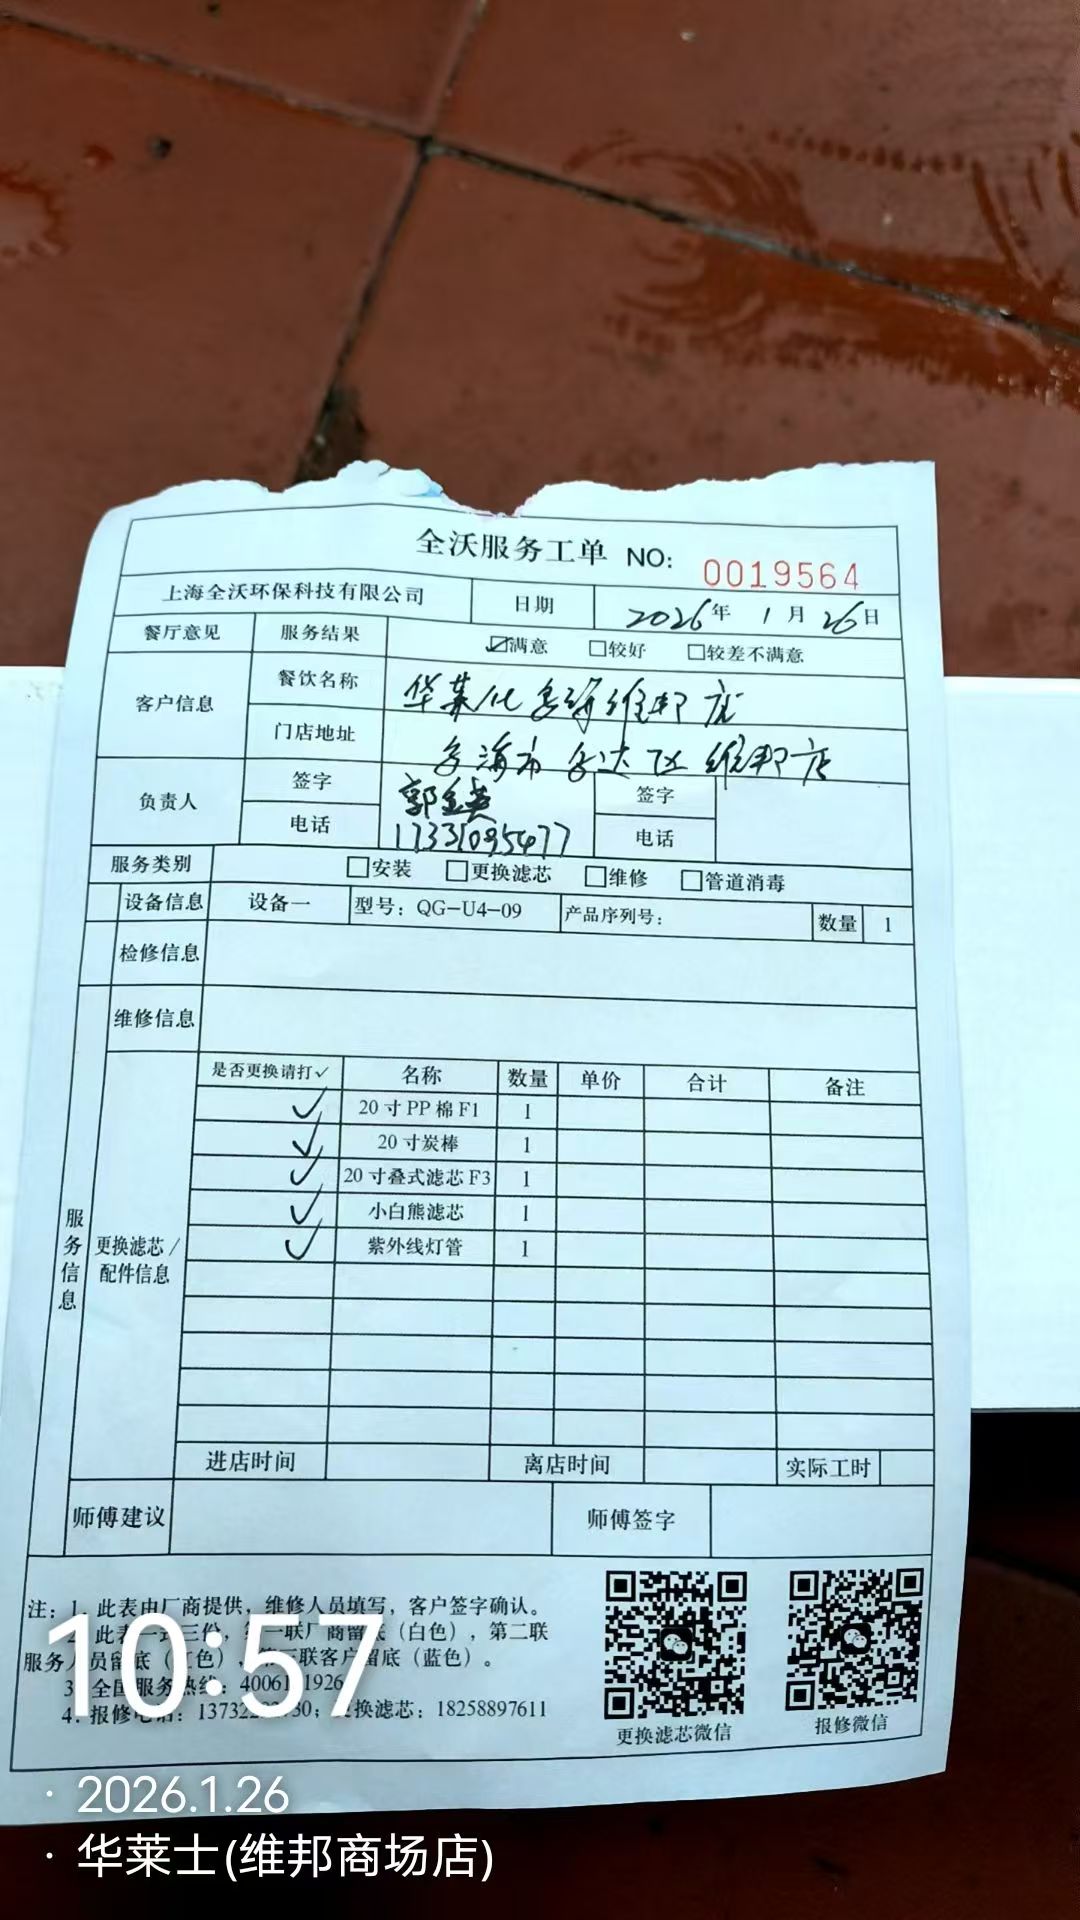 全沃服务工单 NO: 0019564
上海全沃环保科技有限公司 日期 2026年 1月 26日
餐厅意见 服务结果 ☑满意 □较好 □较差不满意
客户信息 餐饮名称 华莱 维邦店
门店地址 市 区 维邦店
负责人 签字 郭 签字
电话 17331095477 电话
服务类别 □安装 □更换滤芯 □维修 □管道消毒
设备信息 设备一 型号: QG-U4-09 产品序列号: 数量 1
检修信息
维修信息
服务信息
更换滤芯/
配件信息
是否更换请打✓ 名称 数量 单价 合计 备注
✓ 20寸PP棉F1 1
✓ 20寸炭棒 1
✓ 20寸叠式滤芯F3 1
✓ 小白熊滤芯 1
✓ 紫外线灯管 1
进店时间 离店时间 实际工时
师傅建议 师傅签字
注: 1. 此表由厂商提供, 维修人员填写, 客户签字确认。
2. 此表一式三份, 第一联厂商留底(白色), 第二联
服务人员留底(红色), 第三联客户留底(蓝色)。
3. 全国服务热线: 
4. 报修电话: 更换滤芯: 18258897611
更换滤芯微信 报修微信
10:57
· 2026.1.26
· 华莱士(维邦商场店)